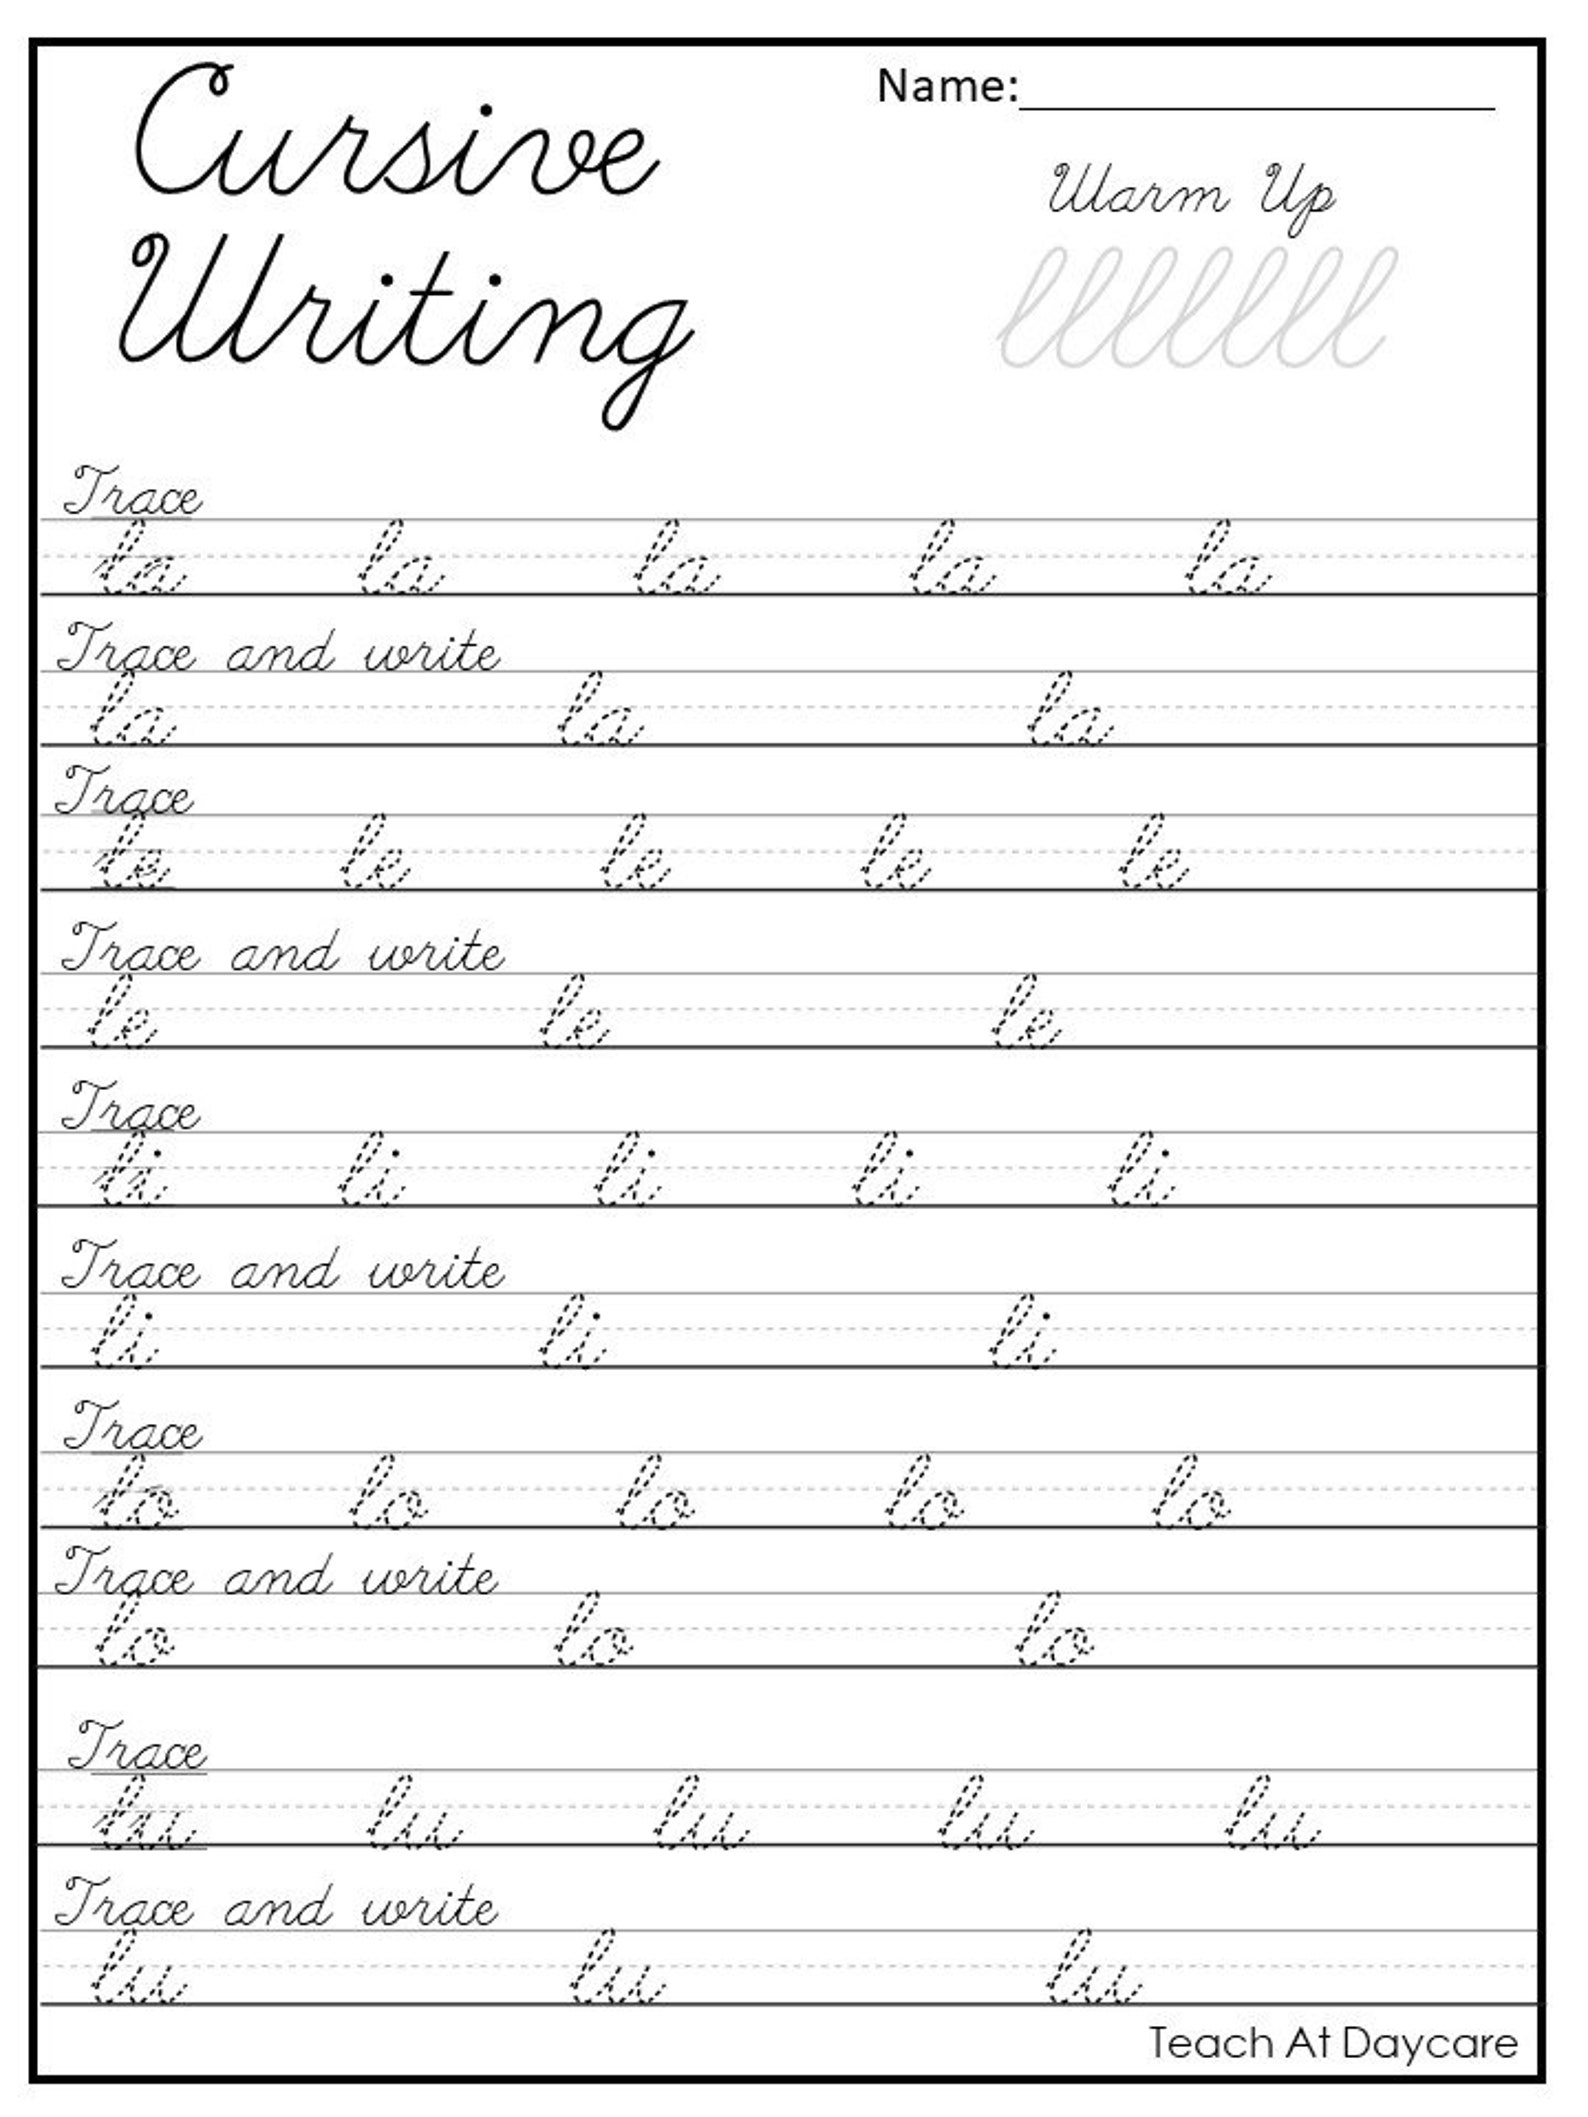 Name:
Cursive
Warm Up
Writing
lllllll
Trace
la la la la la
Trace and write
la la la
Trace
le le le le le
Trace and write
le le le
Trace
li li li li li
Trace and write
li li li
Trace
lo lo lo lo lo
Trace and write
lo lo lo
Trace
lu lu lu lu lu
Trace and write
lu lu lu
Teach At Daycare